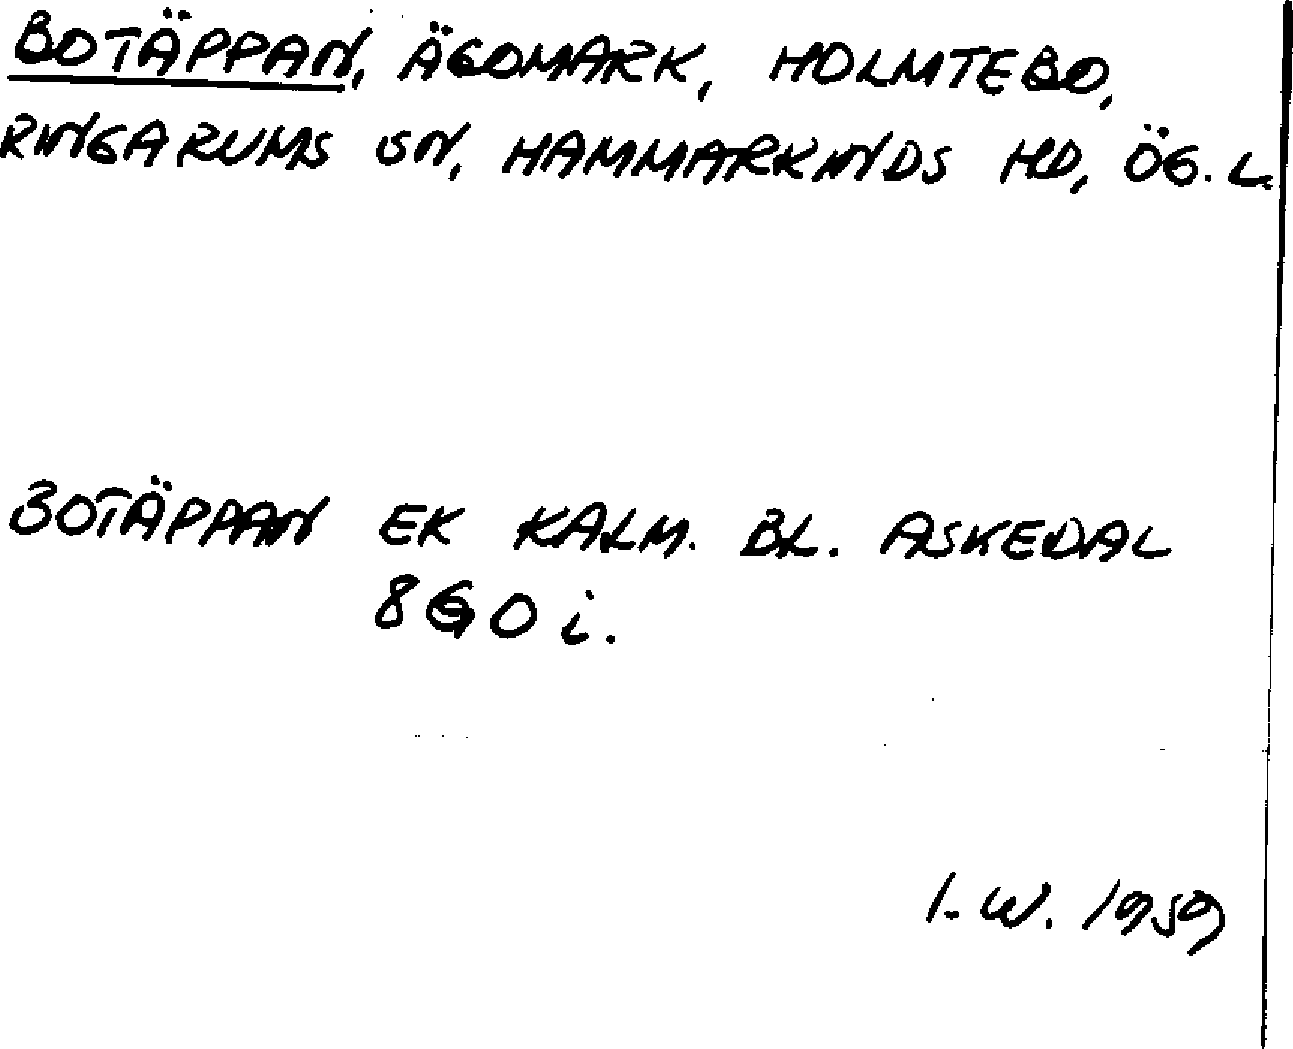 BOTÄPPAN, ÄGOMARK, HOLMTEBO,
RINGARUMS SN, HAMMARKINDS HD, ÖG. L.
BOTÄPPAN EK KALM. BL. ASKEDAL
8G0 i.
I. W. 1959